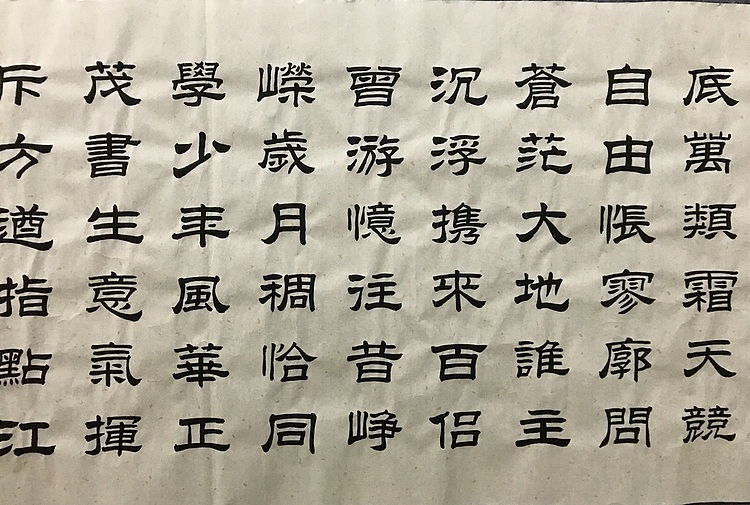 底萬類霜天競
自由悵寥廓問
蒼茫大地誰主
沉浮携來百侣
曾游憶往昔崢
嶸歲月稠恰同
學少年風華正
茂書生意氣揮
斥方遒指點江